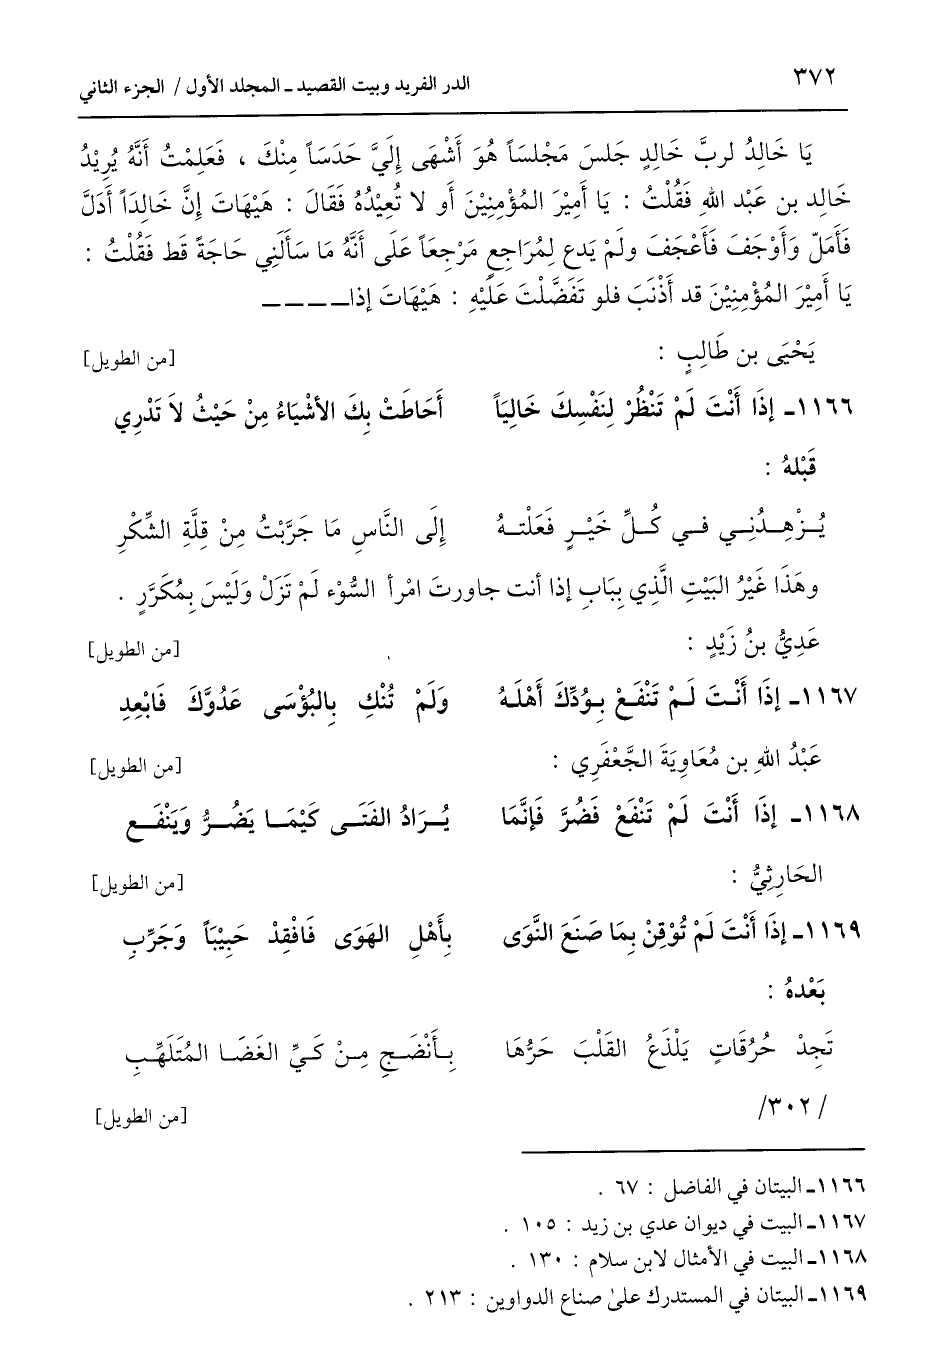 ٣٧٢
الدر الفريد وبيت القصيد ـ المجلد الأول / الجزء الثاني
يَا خَالِدُ لربَّ خَالِدٍ جَلسَ مَجْلسَاً هُوَ أَشْهَى إِلَيَّ حَدَسَاً مِنْكَ ، فَعَلِمْتُ أَنَّهُ يُرِيْدُ
خَالِد بن عَبْد اللهِ فَقُلْتُ : يَا أَمِيْرَ المُؤْمِنِيْنَ أَو لا تُعِيْدُهُ فَقَالَ : هَيْهَاتَ إِنَّ خَالِدَاً أَدَلَّ
فَأَمَلّ وَأَوْجَفَ فَأَعْجَفَ ولَمْ يَدع لِمُرَاجِعٍ مَرْجِعَاً عَلَى أَنَّهُ مَا سَأَلَنِي حَاجَةً قَط فَقُلْتُ :
يَا أَمِيْرَ المُؤْمِنِيْنَ قد أَذْنَبَ فلو تَفَضَّلْتَ عَلَيْهِ : هَيْهَاتَ إذاــ ــ ــ ــ
يَحْيَى بن طَالِبٍ : [من الطويل]
١١٦٦ـ إِذَا أَنْتَ لَمْ تَنْظُرْ لِنَفْسِكَ خَالِيَاً أَحَاطَتْ بِكَ الأشْيَاءُ مِنْ حَيْثُ لاَ تَدْرِي
قَبْلهُ :
يُـزْهِـدُنِـي فـي كُـلِّ خَيْـرٍ فَعَلْتـهُ إِلَى النَّاسِ مَا جَرَّبْتُ مِنْ قِلَّةِ الشِّكْرِ
وهَذَا غَيْرُ البَيْتِ الَّذِي بِبَابِ إذا أنت جاورتَ امْرأ السُّوْء لَمْ تَزَلْ وَلَيْسَ بِمُكَرَّرٍ .
عَدِيُّ بنُ زَيْدٍ : [من الطويل]
١١٦٧ـ إِذَا أَنْـتَ لَـمْ تَنْفَعْ بِـوُدِّكَ أَهْلَـهُ وَلَمْ تُنْكِ بِالبُؤْسَى عَدُوَّكَ فَابْعِدِ
عَبْدُ اللهِ بن مُعَاوِيَةَ الجَّعْفَرِي : [من الطويل]
١١٦٨ـ إِذَا أَنْتَ لَمْ تَنْفَعْ فَضُرَّ فَإِنَّمَا يُـرَادُ الفَتَـى كَيْمَـا يَضُـرُّ وَيَنْفَـع
الحَارِثِيُّ : [من الطويل]
١١٦٩ـ إِذَا أَنْتَ لَمْ تُوْقِنْ بِمَا صَنَعَ النَّوَى بِأَهْلِ الهَوَى فَافْقِدْ حَبِيْبَاً وَجَرِّبِ
بَعْدهُ :
تَجِدْ حُرُقَاتٍ يَلْذَعُ القَلْبَ حَرُّهَا بِـأَنْضَـجِ مِـنْ كَـيِّ الغَضَـا المُتَلَهِّـبِ
/٣٠٢/ [من الطويل]
١١٦٦ـ البيتان في الفاضل : ٦٧ .
١١٦٧ـ البيت في ديوان عدي بن زيد : ١٠٥ .
١١٦٨ـ البيت في الأمثال لابن سلام : ١٣٠ .
١١٦٩ـ البيتان في المستدرك على صناع الدواوين : ٢١٣ .